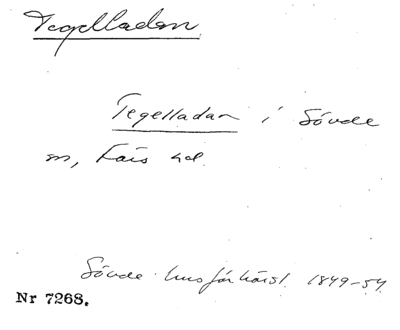 Tegelladan
Tegelladan i Sövde
sn, Färs hd.
Sövde husförhörsl. 1849-54.
Nr 7268.